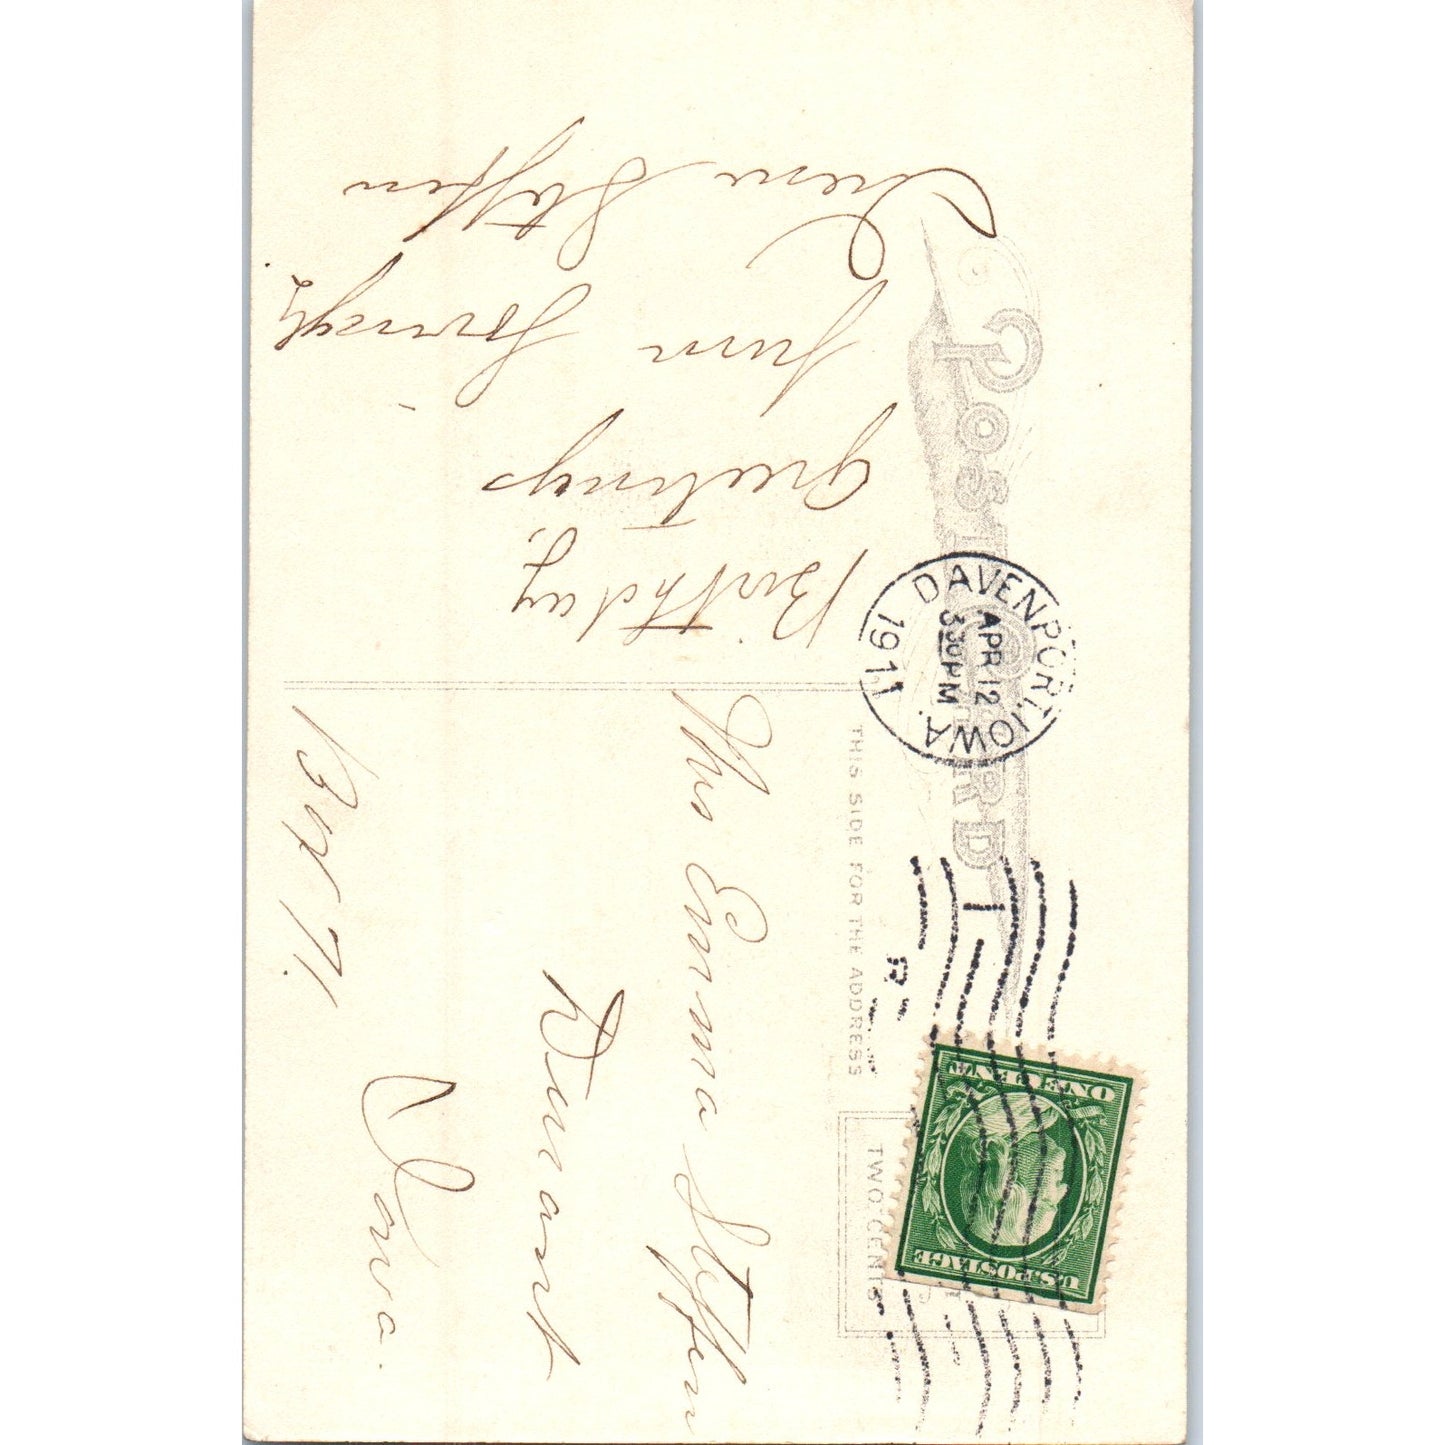 POST CARD
DAVENPORT, IOWA.
APR 12
330 PM
1911
THIS SIDE FOR THE ADDRESS
TWO CENTS
U.S. POSTAGE
ONE CENT
Birthday
Greetings
from
Irene Steffen
Mrs Emma Steffen
Durant
Iowa.
Box 71.